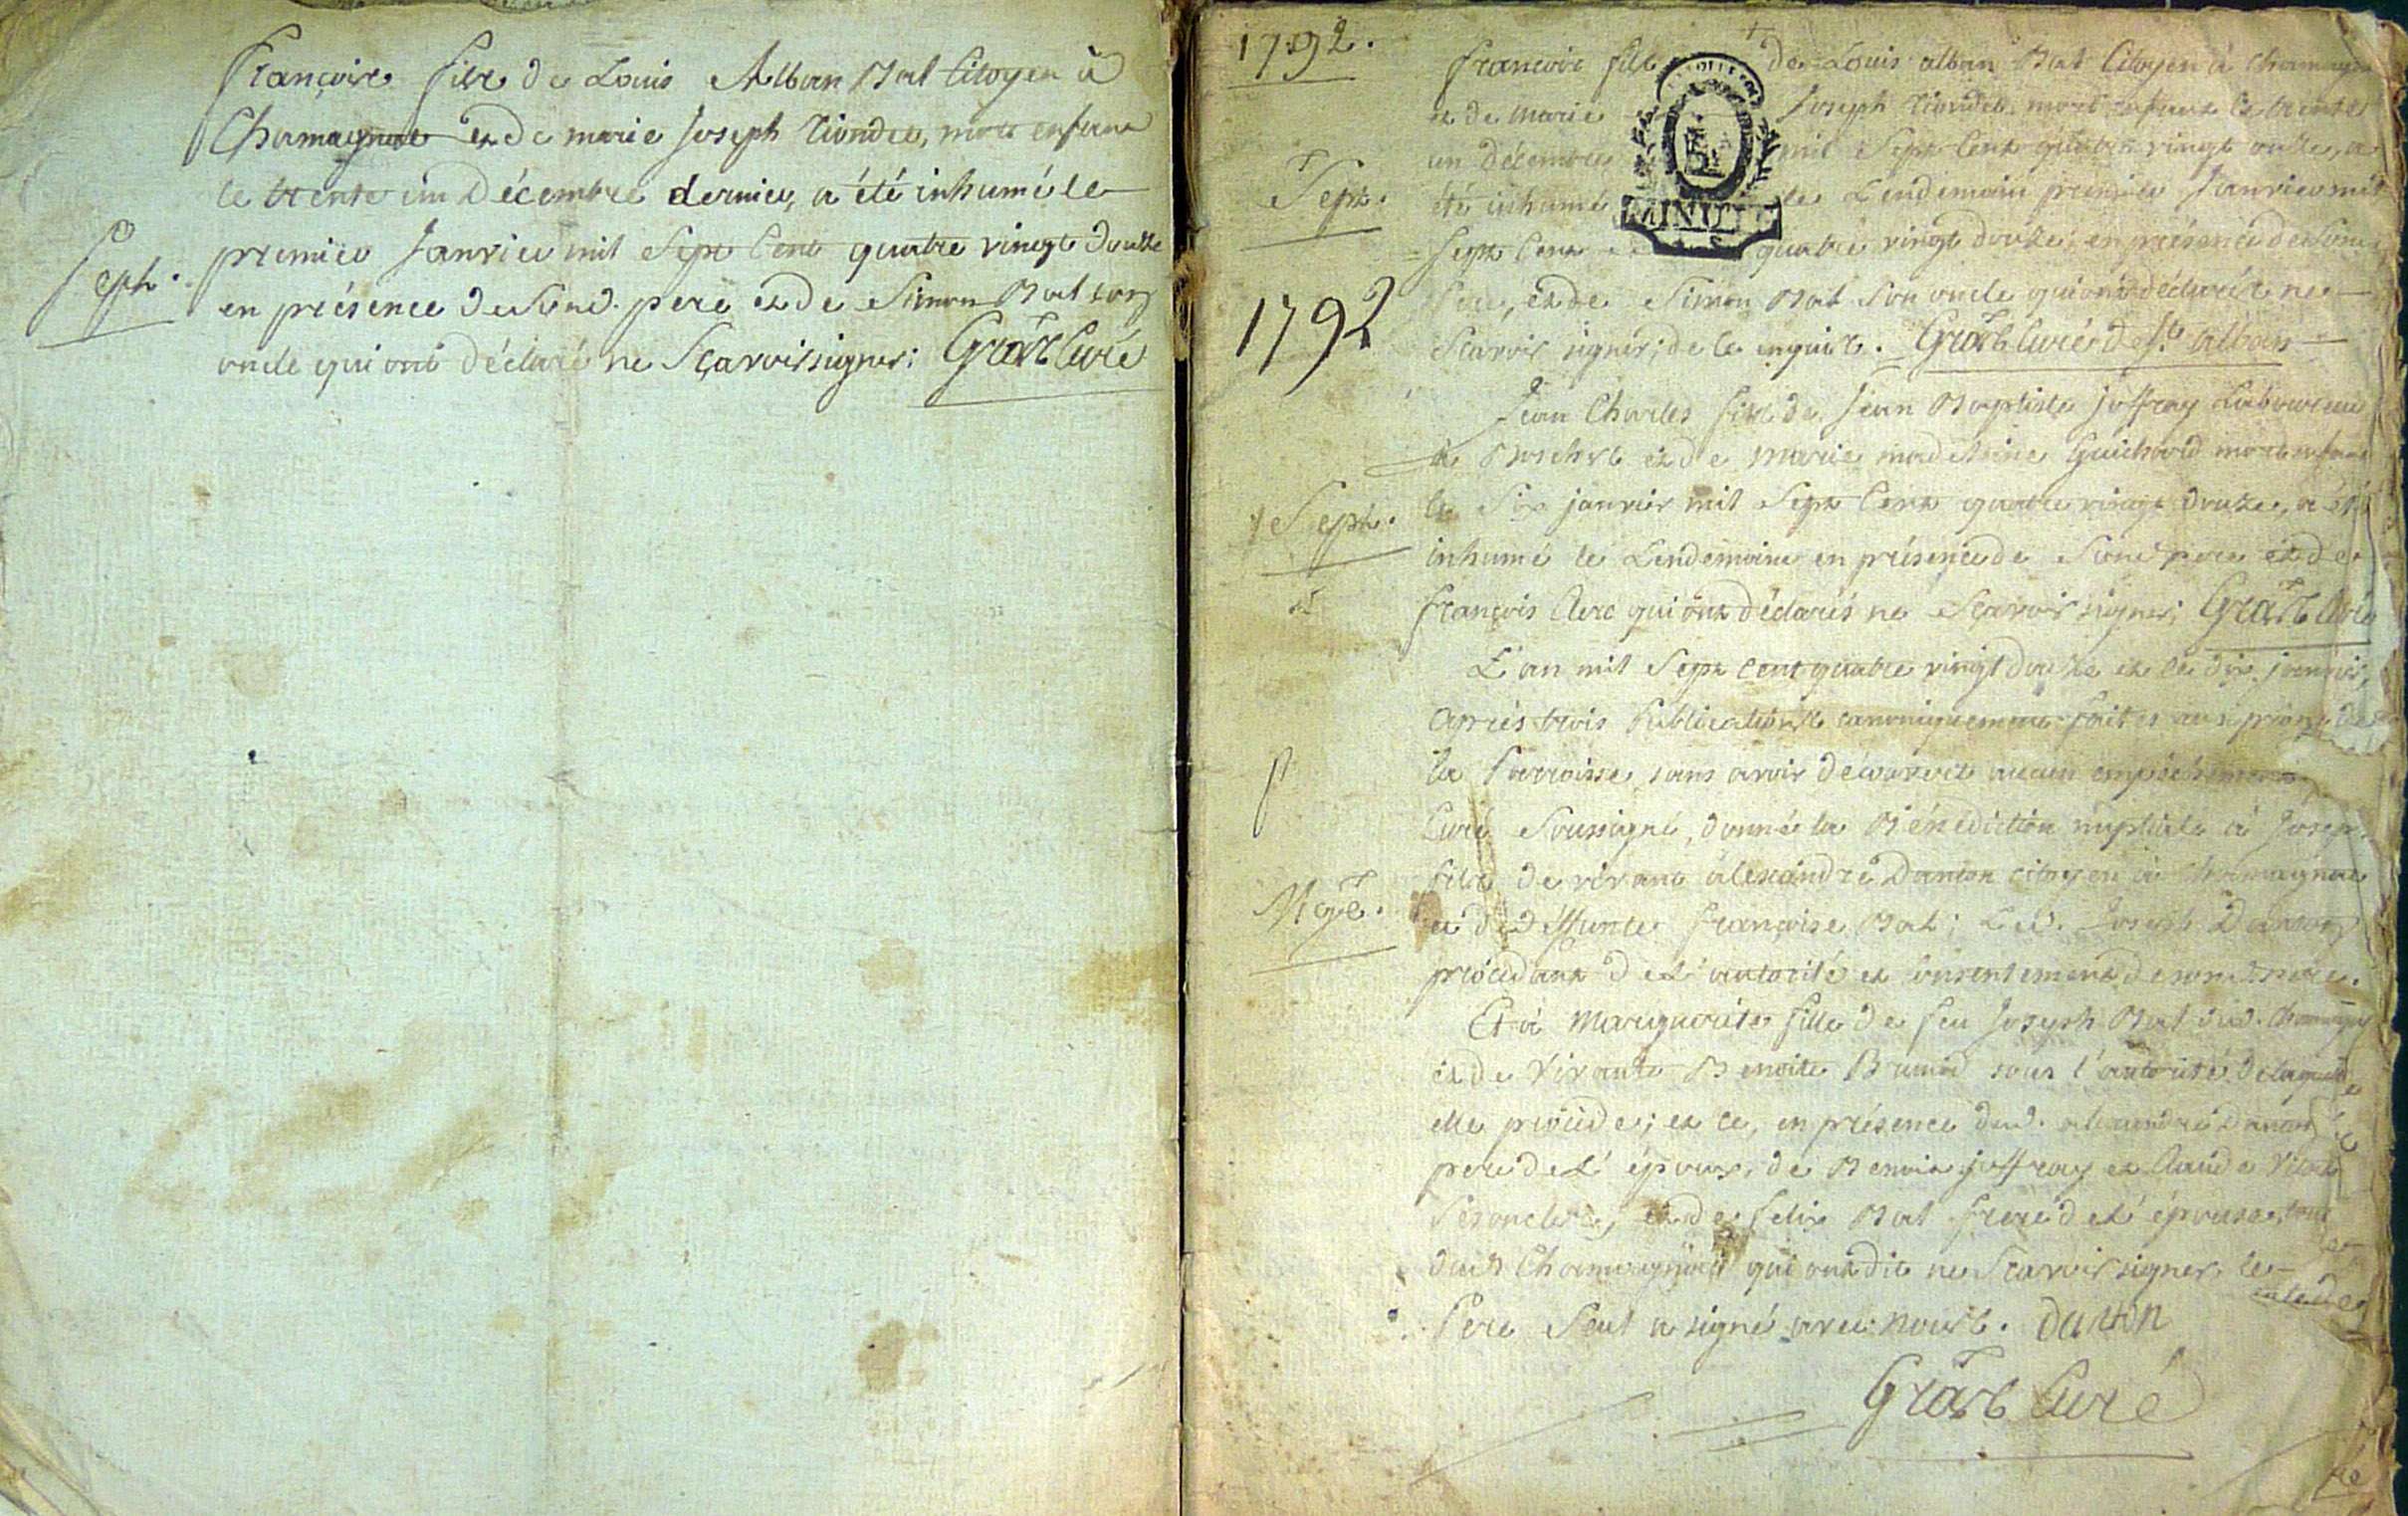 François fils de Louis Alban Bat Citoyen à
Chamagneu et de marie Joseph Tiondet, mort enfant
le trente un Décembre dernier, a été inhumé le
premier Janvier mil Sept Cent quatre vingt douze
Seph.
en présence de Sond. pere et de Simon Bat son
oncle qui ont déclaré ne Sçavoir signer; Graz Curé
1792.
François fils de Louis alban Bat Citoyen à
et de Marie Joseph Tiondet mort enfant le trente
un Décembre mil Sept Cent quatre vingt onze, a
Seph.
été inhumé le Lendemain premier Janvier mil
MINUT
Sept Cent quatre vingt douze, en présence de Son
1792
Pere, et de Simon Bat Son oncle qui ont déclaré ne
Scavoir signer; de ce enquis. Graz Curé de St. alban
Jean Charles fils de Jean Baptiste joffray Laboureur
à et de Marie madeleine Guichard mort enfant
Seph.
le Six janvier mil Sept Cent quatre vingt douze, a été
inhumé le Lendemain en présence de Sond pere et de
François Clerc qui ont déclarés ne Sçavoir signer; Graz Curé
L'an mil Sept Cent quatre vingt douze et le dix janvier,
après trois Publications canoniquement faites aux prones de
la Parroisse, sans avoir découvert aucun empêchement
Curé Soussigné, donné la Bénédiction nuptiale à Joseph
fils de vivant alexandre Danton citoyen à Chamagneu
Mge.
et de deffunte Françoise Bat; Led. Joseph Danton
procédant de L'autorité et consentement de sond. pere.
Et à Marguerite fille de feu Joseph Bat dud.
et de Vivante Benoite Brunod sous l'autorité de laquelle
elle procède; et ce, en présence dud. alexandre Danton
pere de L'époux, de Benoit joffray et Claude Vital
Ses oncles, et de felix Bat frere de L'épouse, tous
dud Chamagneu qui ont dit ne Scavoir signer le
Pere Seul a signé avec nous. danton
Graz Curé